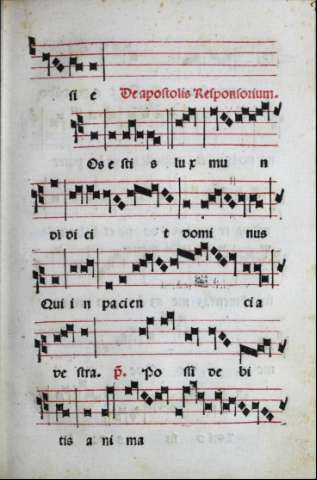 si e De apostolis Responsorium.
Os e sti s lux mu n
di di ci t domi nus
Qui i n pacien cia
ve stra. p̃. Po ssi de bi
tis a ni ma